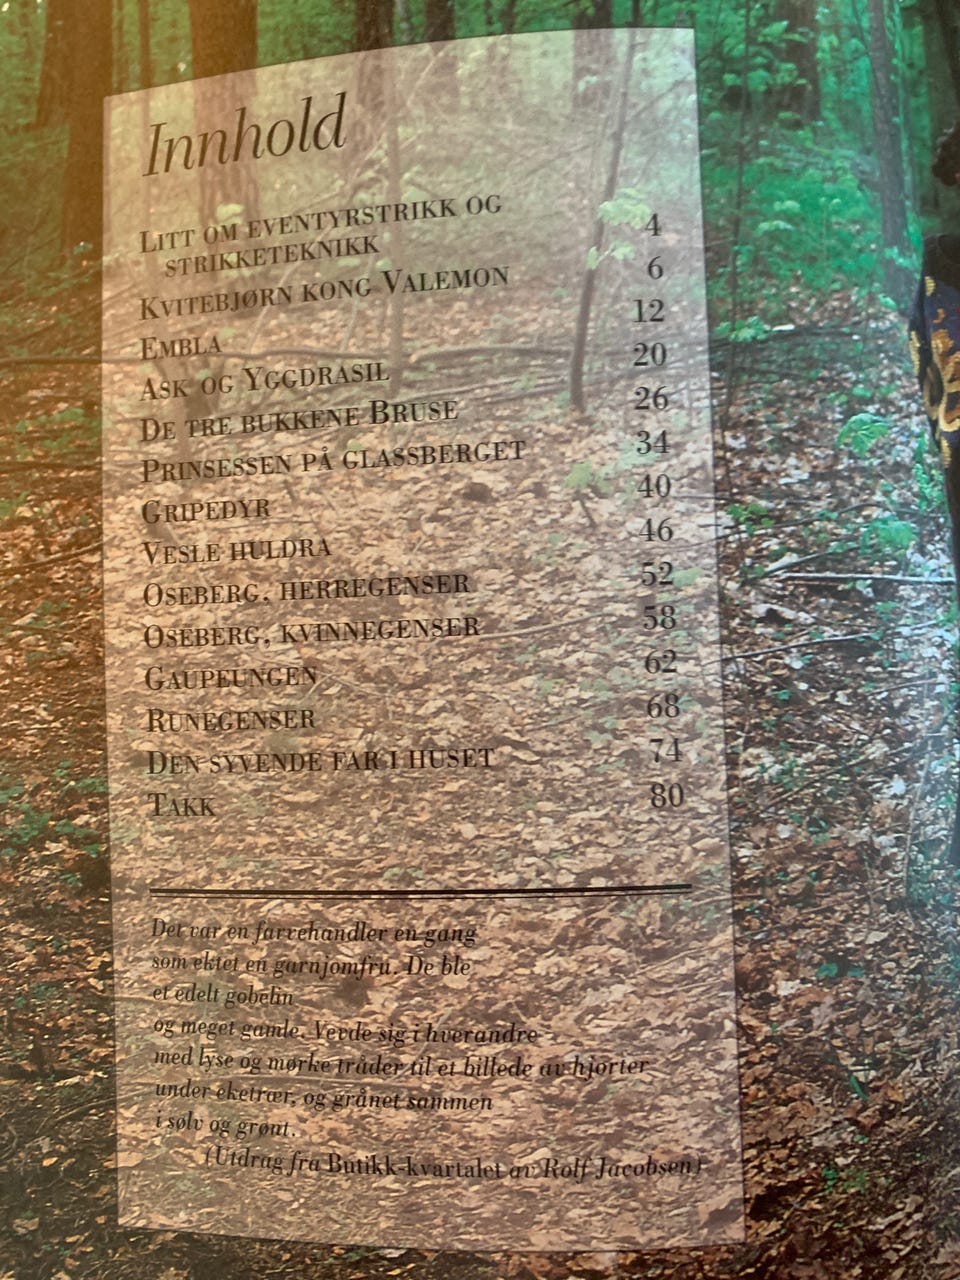 Innhold
LITT OM EVENTYRSTRIKK OG
STRIKKETEKNIKK 4
KVITEBJØRN KONG VALEMON 6
EMBLA 12
ASK OG YGGDRASIL 20
DE TRE BUKKENE BRUSE 26
PRINSESSEN PÅ GLASSBERGET 34
GRIPEDYR 40
VESLE HULDRA 46
OSEBERG, HERREGENSER 52
OSEBERG, KVINNEGENSER 58
GAUPEUNGEN 62
RUNEGENSER 68
DEN SYVENDE FAR I HUSET 74
TAKK 80
Det var en farvehandler en gang
som ektet en garnjomfru. De ble
et edelt gobelin
og meget gamle. Vevde sig i hverandre
med lyse og mørke tråder til et billede av hjorter
under eketrær, og grånet sammen
i sølv og grønt.
(Utdrag fra Butikk-kvartalet av Rolf Jacobsen)